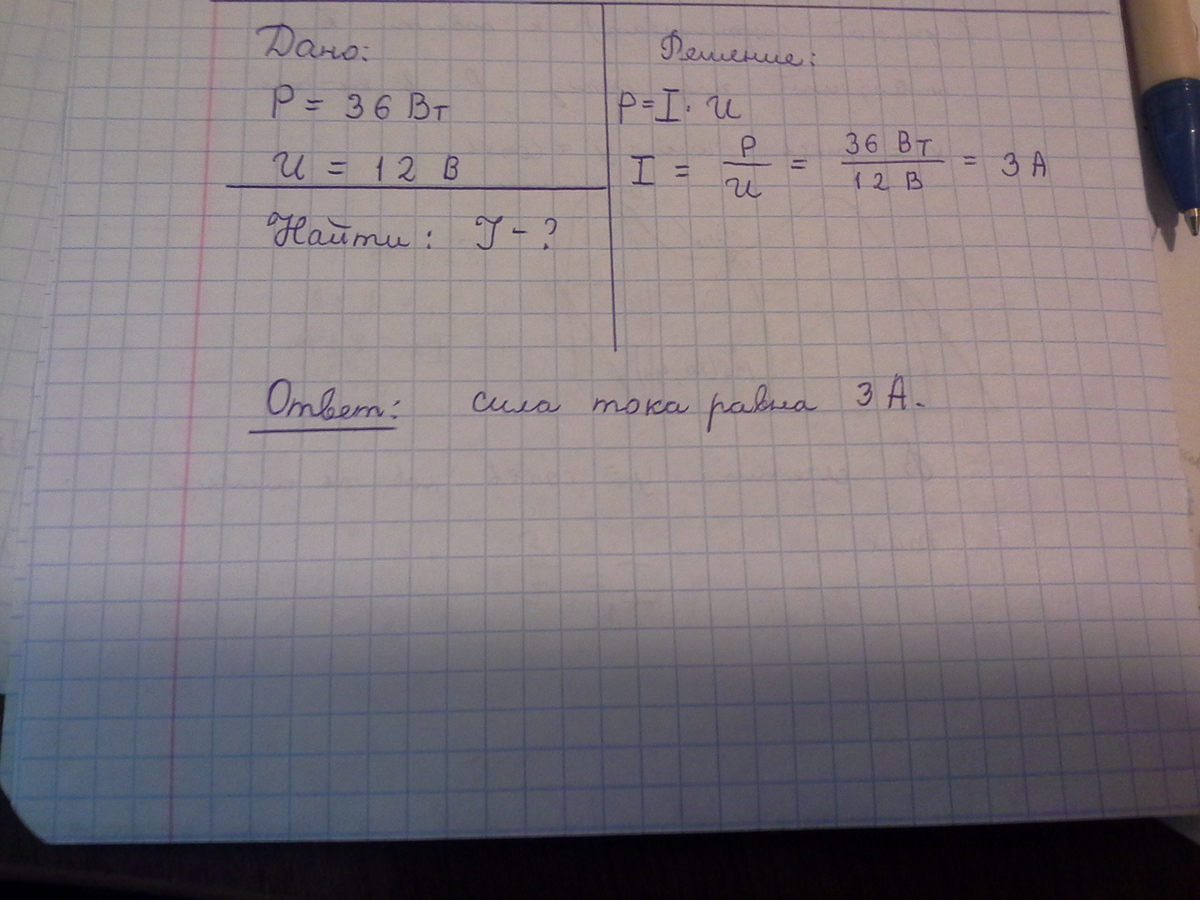 Дано:
P = 36 Вт
U = 12 В
Найти: I - ?
Решение:
P=I·U
I = P/U = 36 Вт/12 В = 3 А
Ответ: сила тока равна 3 А.